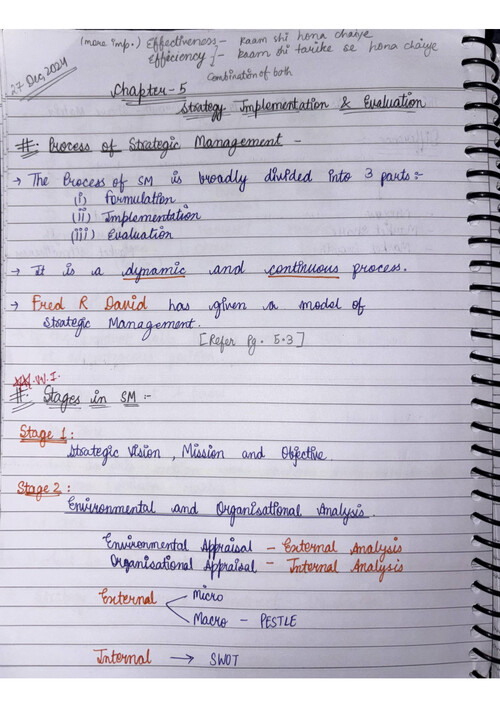 (more imp.) Effectiveness - kaam shi hona chaiye
Efficiency ] - kaam shi tarike se hona chaiye
Combination of both
27 Dec, 2024
Chapter-5
Strategy Implementation & Evaluation
#: Process of Strategic Management -
→ The Process of SM is broadly divided into 3 parts:-
(i) Formulation
(ii) Implementation
(iii) Evaluation
→ It is a dynamic and continuous process.
→ Fred R David has given a model of
Strategic Management.
[Refer Pg. 5.3]
V.V.I.
#: Stages in SM :-
Stage 1:
Strategic Vision, Mission and Objective.
Stage 2:
Environmental and Organisational Analysis.
Environmental Appraisal - External Analysis
Organisational Appraisal - Internal Analysis
External
Micro
Macro - PESTLE
Internal → SWOT